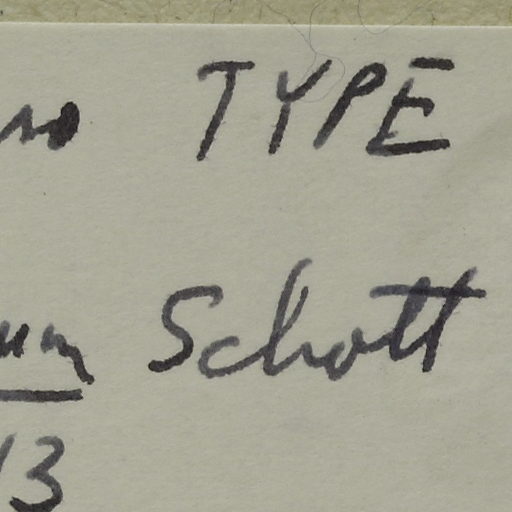 TYPE
Schott
13